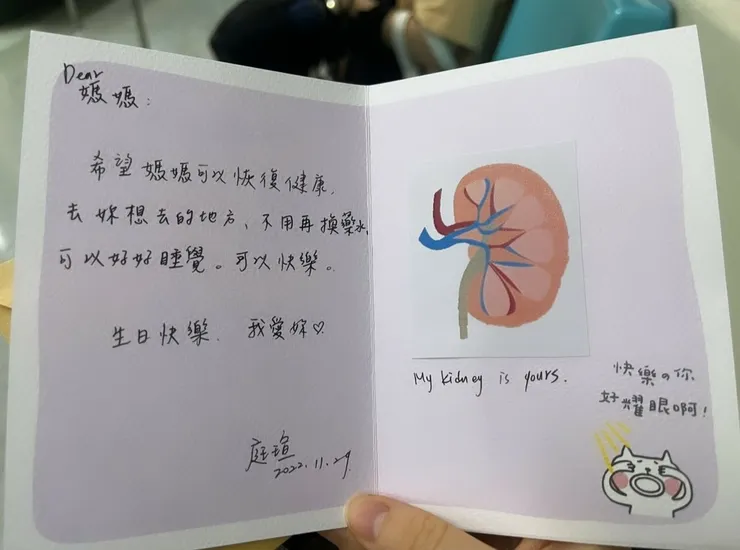 Dear
媽媽：
希望媽媽可以恢復健康，
去妳想去的地方、不用再換藥水，
可以好好睡覺。可以快樂。
生日快樂，我愛妳♡
庭瑄
2022.11.29.
My kidney is yours.
快樂の你
好耀眼啊！